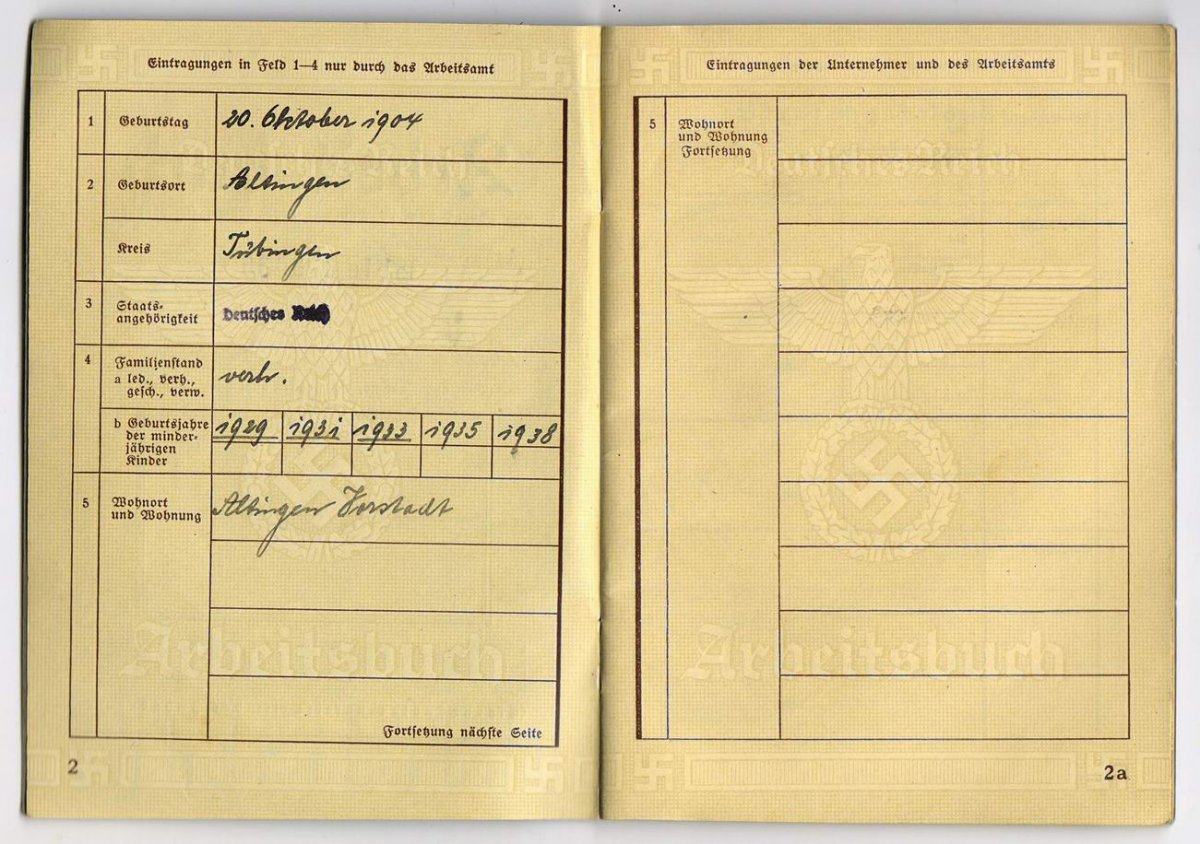 Eintragungen in Feld 1—4 nur durch das Arbeitsamt
1 Geburtstag 20. Oktober 1904
2 Geburtsort Altingen
Kreis Tübingen
3 Staats-
angehörigkeit Deutsches Reich
4 Familienstand
a led., verh.,
gesch., verw. verh.
b Geburtsjahre
der minder-
jährigen
Kinder 1929 1931 1933 1935 1938
5 Wohnort
und Wohnung Altingen Vorstadt
Arbeitsbuch
Fortsetzung nächste Seite
2
Eintragungen der Unternehmer und des Arbeitsamts
5 Wohnort
und Wohnung
Fortsetzung
Deutsches Reich
Arbeitsbuch
2a